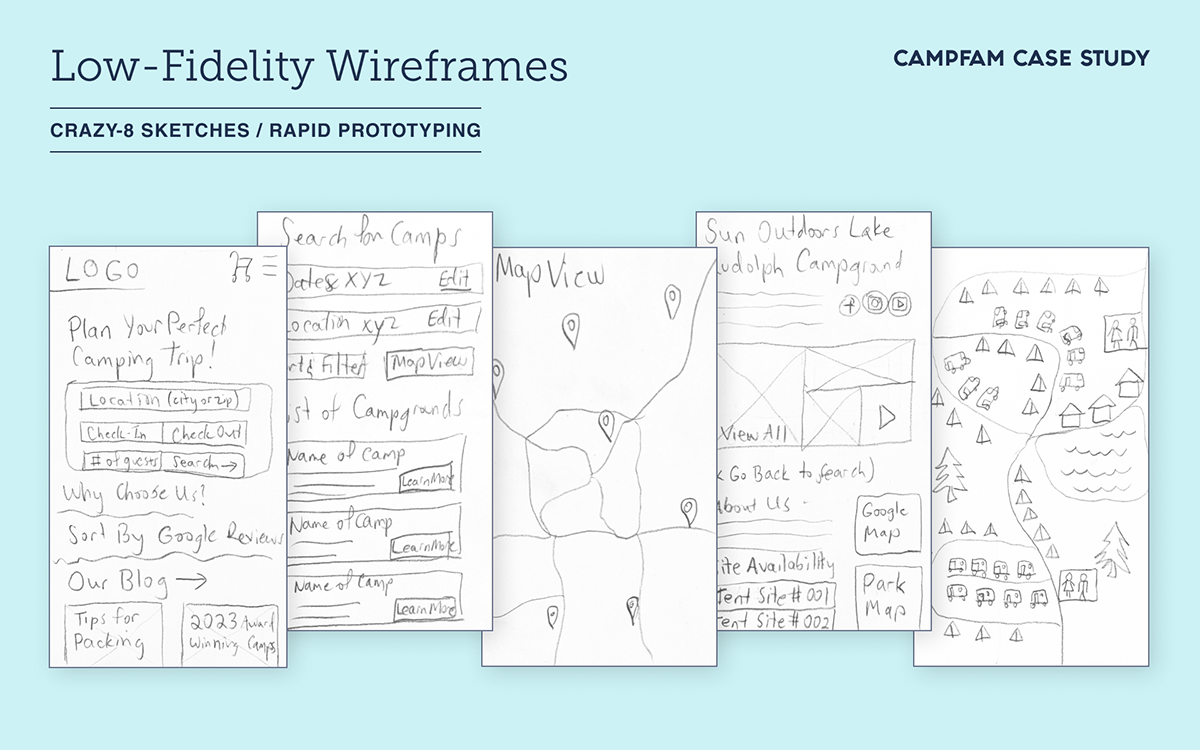 Low-Fidelity Wireframes
CAMPFAM CASE STUDY
CRAZY-8 SKETCHES / RAPID PROTOTYPING
LOGO
Plan Your Perfect
Camping Trip!
Location (city or zip)
Check-In Check Out
# of guests Search→
Why Choose Us?
Sort By Google Reviews
Our Blog →
Tips for
Packing
2023 Award
Winning Camps
Search for Camps
Dates XYZ Edit
Location xyz Edit
rt & Filter Map View
ist of Campgrounds
Name of Camp
Learn More
Name of Camp
Learn More
Name of Camp
Learn More
Map View
Sun Outdoors Lake
udolph Campground
View All
< Go Back to Search)
About Us
Google
Map
ite Availability
Tent Site # 001
Tent Site # 002
Park
Map